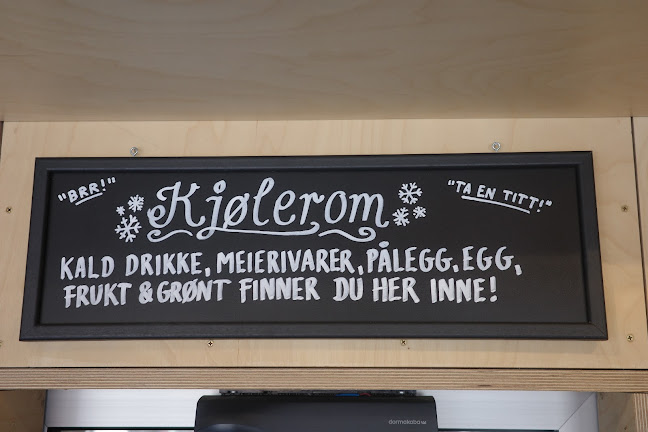 "BRR!"
Kjølerom
"TA EN TITT!"
KALD DRIKKE, MEIERIVARER, PÅLEGG, EGG,
FRUKT & GRØNT FINNER DU HER INNE!
dormakaba